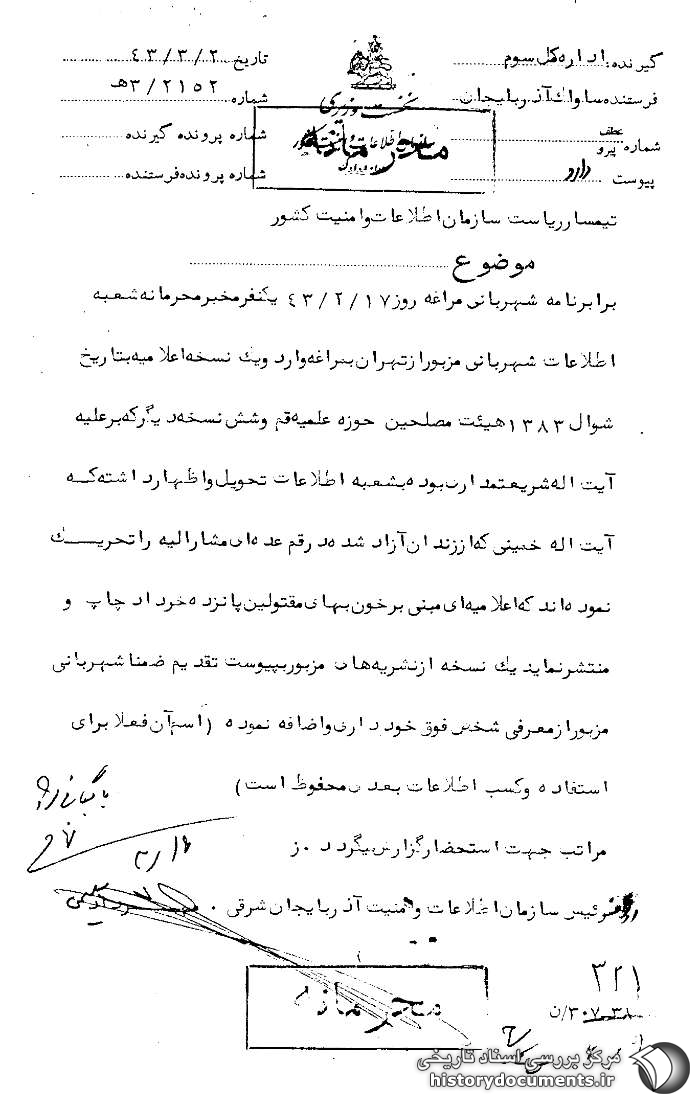 گیرنده: اداره کل سوم
فرستنده ساواک آذربایجان
شماره عطف پیرو
پیوست دارد
نخست وزیری
سازمان اطلاعات و امنیت کشور
محرمانه
تاریخ ۴۳/۳/۲
شماره ۳/۲۱۵۲هـ
شماره پرونده گیرنده
شماره پرونده فرستنده
تیمسار ریاست سازمان اطلاعات و امنیت کشور
موضوع
برابر نامه شهربانی مراغه روز ۴۳/۲/۱۷ یکنفر مخبر محرمانه شعبه
اطلاعات شهربانی مزبور از تهران بمراغه وارد و یک نسخه اعلامیه بتاریخ
شوال ۱۳۸۳ هیئت مصلحین حوزه علمیه قم و شش نسخه دیگر که بر علیه
آیت اله شریعتمداری بوده بشعبه اطلاعات تحویل و اظهار داشته که
آیت اله خمینی که از زندان آزاد شده در قم عده ای مشارالیه را تحریک
نموده اند که اعلامیه ای مبنی بر خون بهای مقتولین پانزده خرداد چاپ و
منتشر نماید یک نسخه از نشریه های مزبور بپیوست تقدیم ضمنا شهربانی
مزبور از معرفی شخص فوق خودداری و اضافه نموده (اسم آن فعلا برای
استفاده و کسب اطلاعات بعدی محفوظ است)
مراتب جهت استحضار گزارش میگردد . ز
رئیس سازمان اطلاعات و امنیت آذربایجان شرقی .
بایگانی
محرمانه
۳۲۱
مرکز بررسی اسناد تاریخی
historydocuments.ir